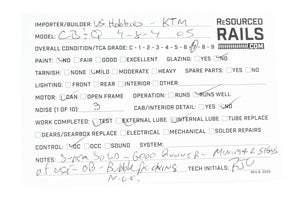 IMPORTER/BUILDER: US Hobbies - KTM
RESOURCED
MODEL: CB&Q 4-8-4 05
RAILS
.COM
OVERALL CONDITION/TCA GRADE: C-1-2-3-4-5-6-7-8-9
PAINT: NO FAIR GOOD EXCELLENT GLAZING: YES NO
TARNISH: NONE MILD MODERATE HEAVY SPARE PARTS: YES NO
LIGHTING: FRONT REAR INTERIOR OTHER
MOTOR: CAN OPEN FRAME OPERATION: RUNS RUNS WELL
NOISE (1 OF 10): 3 CAB/INTERIOR DETAIL: YES NO
WORK COMPLETED: TEST EXTERNAL LUBE INTERNAL LUBE TRUCK REPAIR
GEARS/GEARBOX REPLACE ELECTRICAL MECHANICAL SOLDER REPAIRS
CONTROL: DC DCC SOUND SYSTEM:
NOTES: Super SOLD - GOOD Runner - MINIMAL SIGNS
REV B 2025
of USE - OB - Bubble Packing TECH INITIALS:
N.I.C.